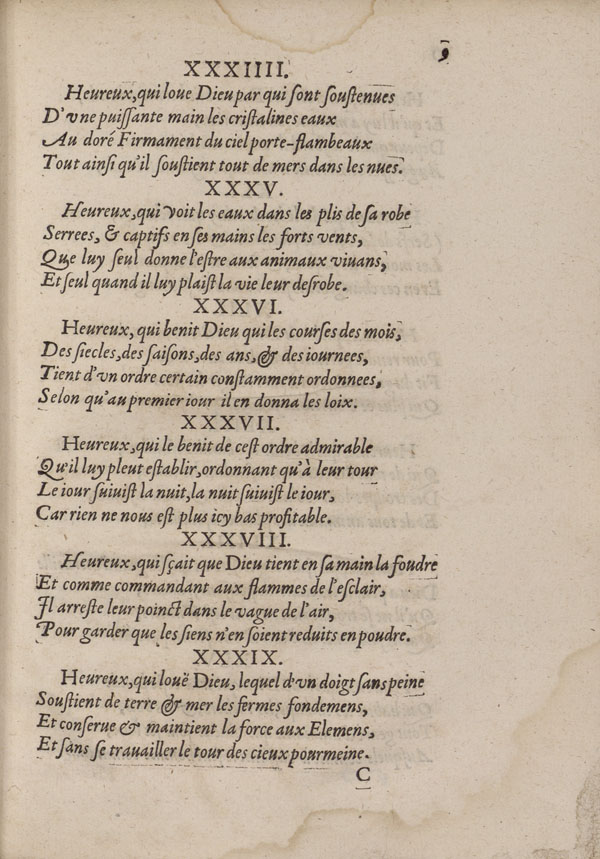 9
XXXIIII.
Heureux, qui loue Dieu par qui sont soustenues
D'vne puissante main les cristalines eaux
Au doré Firmament du ciel porte-flambeaux
Tout ainsi qu'il soustient tout de mers dans les nues.
XXXV.
Heureux, qui voit les eaux dans les plis de sa robe
Serrees, & captifs en ses mains les forts vents,
Que luy seul donne l'estre aux animaux viuans,
Et seul quand il luy plaist la vie leur desrobe.
XXXVI.
Heureux, qui benit Dieu qui les courses des mois,
Des siecles, des saisons, des ans, & des iournees,
Tient d'vn ordre certain constamment ordonnees,
Selon qu'au premier iour il en donna les loix.
XXXVII.
Heureux, qui le benit de cest ordre admirable
Qu'il luy pleut establir, ordonnant qu'à leur tour
Le iour suiuist la nuit, la nuit suiuist le iour,
Car rien ne nous est plus icy bas profitable.
XXXVIII.
Heureux, qui sçait que Dieu tient en sa main la foudre
Et comme commandant aux flammes de l'esclair,
Il arreste leur poinct dans le vague de l'air,
Pour garder que les siens n'en soient reduits en poudre.
XXXIX.
Heureux, qui louë Dieu, lequel d'vn doigt sans peine
Soustient de terre & mer les fermes fondemens,
Et conserue & maintient la force aux Elemens,
Et sans se trauailler le tour des cieux pourmeine.
C